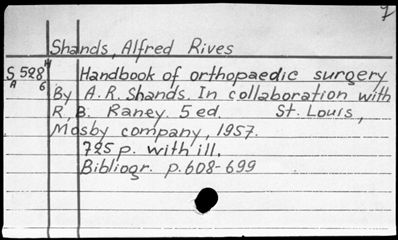 Shands, Alfred Rives
S 528 H
A 6
Handbook of orthopaedic surgery
By A.R. Shands. In collaboration with
R. B. Raney. 5 ed. St. Louis,
Mosby company, 1957.
725 p. with ill.
Bibliogr. p. 608-699